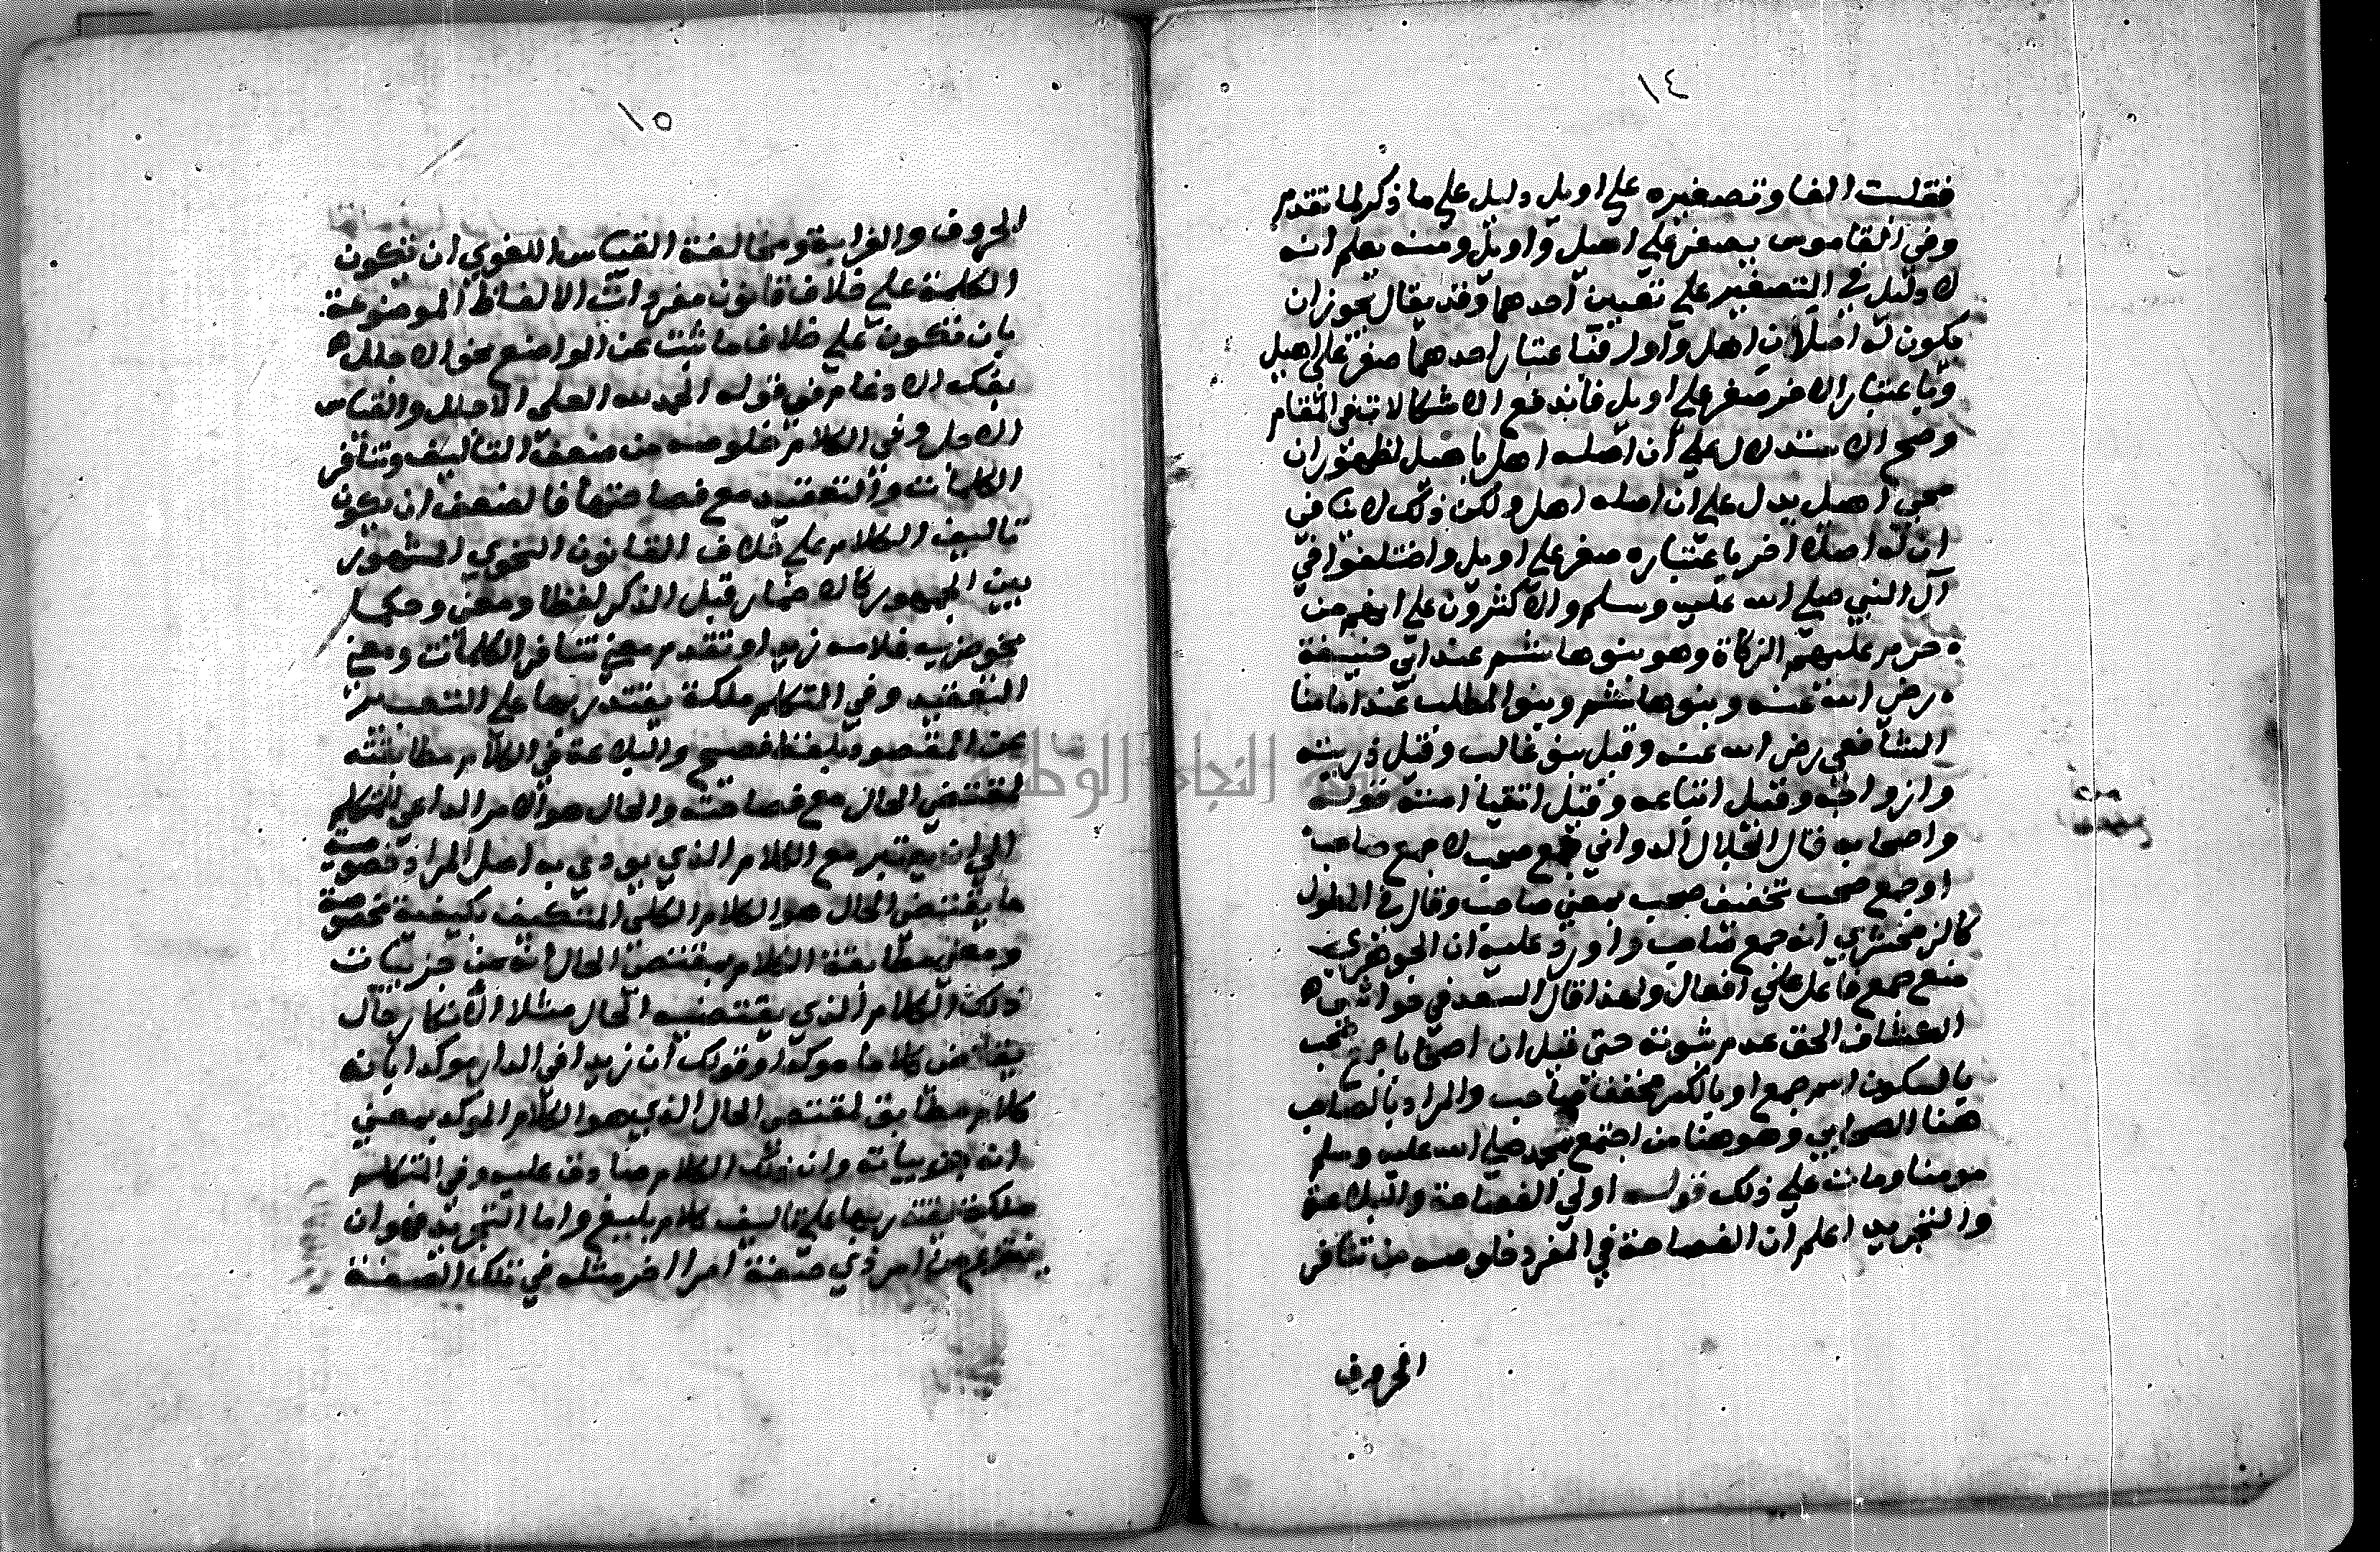 ١٤
فقلبت الفا وتصغيره على اويل دليل على ما ذكر لما تقدم
وفي القاموس يصغر على اهيل واويل ومنه يعلم انه
لا دليل في التصغير على تعيين احدهما وقد يقال يجوز ان
يكون له اصلان اهل واول فباعتبار احدهما صغر على اهيل
وباعتبار الاخر صغر على اويل فاندفع الاشكالات في المقام
وصح الاستدلال على أن اصله اهل باهيل لظهور ان
مجي اهيل يدل على ان اصله اهل ولكن ذلك لا ينافي
ان له اصلا اخر باعتباره صغر على اويل واختلفوا في
آل النبي صلى الله عليه وسلم والاكثرون على انهم من
حرم عليهم الزكاة وهو بنو هاشم عند ابي حنيفة
رضي الله عنه وبنو هاشم وبنو المطلب عند امامنا
الشافعي رضي الله عنه وقيل بنو غالب وقيل ذريته
وازواجه وقيل اتباعه وقيل اتقيا امته قوله
واصحابه قال الجلال الدواني جمع صحب لا جمع صاحب
او جمع صحب تخفيف صحب بمعنى صاحب وقال في المطول
كالزمخشري انه جمع صاحب واورد عليه ان الجوهري
منع جمع فاعل على افعال ولهذا قال السعد في حواشي
الكشاف الحق عدم ثبوته حتى قيل ان اصحابا جمع صحب
بالسكون اسم جمع او بالكسر مخفف صاحب والمراد بالصاحب
هنا الصحابي وهو هنا من اجتمع بمحمد صلى الله عليه وسلم
مومنا ومات على ذلك قوله اولي الفصاحة والبلاغة
والتجريد اعلم ان الفصاحة في المفرد خلوصه من تنافر
الحروف
١٥
الحروف والغرابة ومخالفة القياس اللغوي ان تكون
الكلمة على خلاف قانون مفردات الالفاظ الموضوعة
بان تكون على خلاف ما ثبت عن الواضع نحو الاجلل
بفك الادغام في قوله الحمد لله العلي الاجلل والقياس
الاجل وفي الكلام خلوصه من ضعف التأليف وتنافر
الكلمات والتعقيد مع فصاحتها فالضعف ان يكون
تاليف الكلام على خلاف القانون النحوي المشهور
بين الجمهور كالاضمار قبل الذكر لفظا ومعنى وحكما
نحو ضرب غلامه زيدا وتقدم معنى تنافر الكلمات ومعنى
التعقيد وفي المتكلم ملكة يقتدر بها على التعبير
عن المقصود بلفظ فصيح والبلاغة في الكلام مطابقته
لمقتضى الحال مع فصاحته والحال هو الامر الداعي للمتكلم
الى ان يعتبر مع الكلام الذي يودي به اصل المراد خصوصية
ما يقتضي الحال هو الكلام الكلي المتكيف بكيفية مخصوصة
ومعنى مطابقة الكلام لمقتضى الحال انه من جزييات
ذلك الكلام الذي يقتضيه الحال مثلا الانكار حال
يقتضي كلاما موكدا وقولك ان زيدا في الدار موكدا بانه
كلام مطابق لمقتضى الحال الذي هو الكلام الموكد بمعنى
انه جزيياته وان ذلك الكلام صادق عليه وفي المتكلم
ملكة يقتدر بها على تاليف كلام بليغ واما التجريد فهو ان
ينتزع من امر ذي صفة امرا اخر مثله في تلك الصفة
النجاح الوطنية